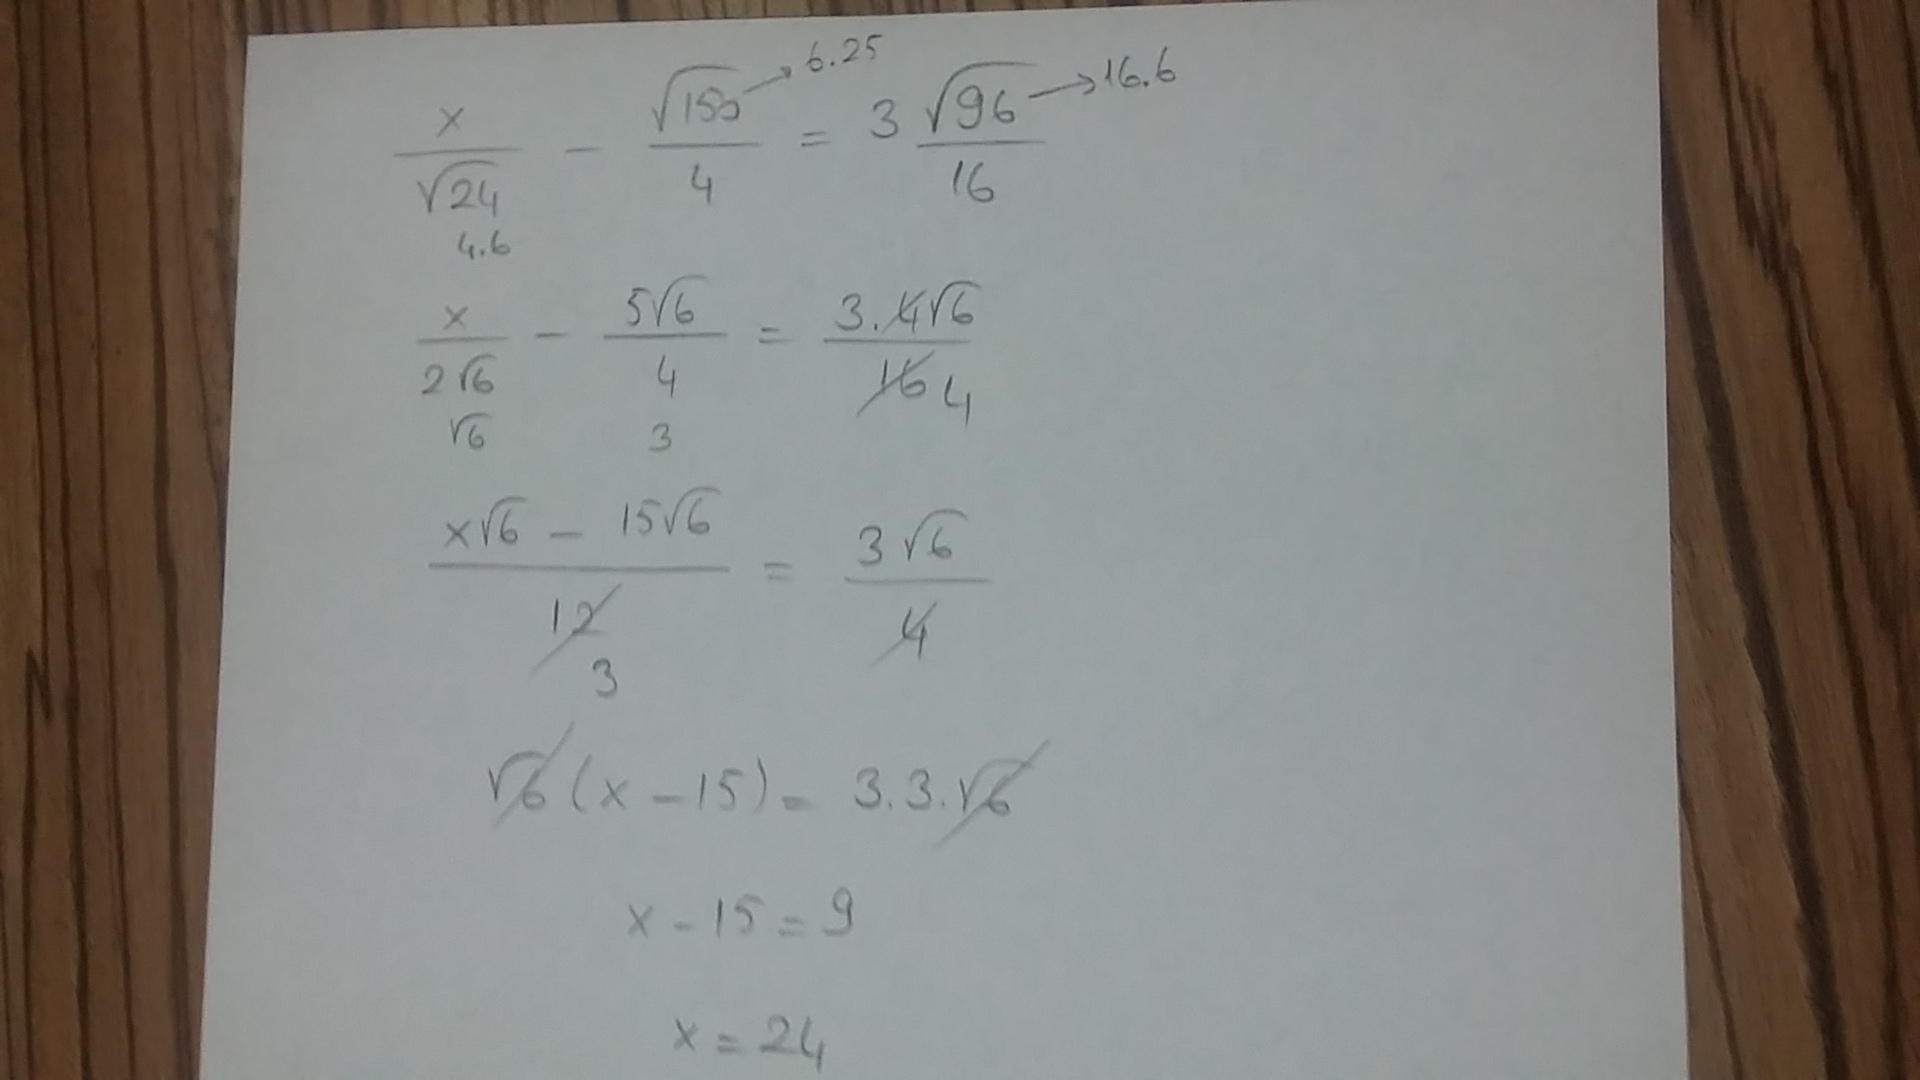 x/√24 - √150/4 = 3 √96/16
→ 6.25
→ 16.6
4.6
x/2√6 - 5√6/4 = 3.4√6/16 4
√6 3
x√6 - 15√6/12 = 3√6/4
3
√6 (x - 15) = 3.3.√6
x - 15 = 9
x = 24